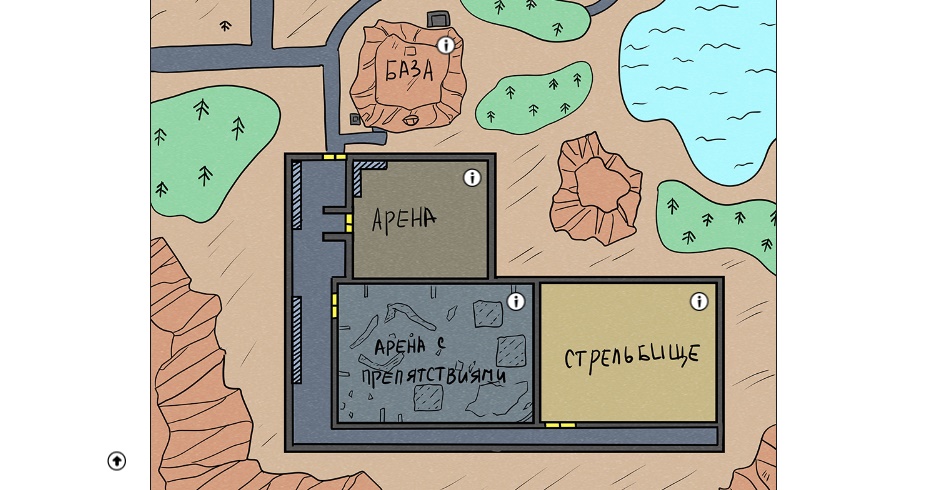 БАЗА
АРЕНА
АРЕНА С
ПРЕПЯТСТВИЯМИ
СТРЕЛЬБИЩЕ